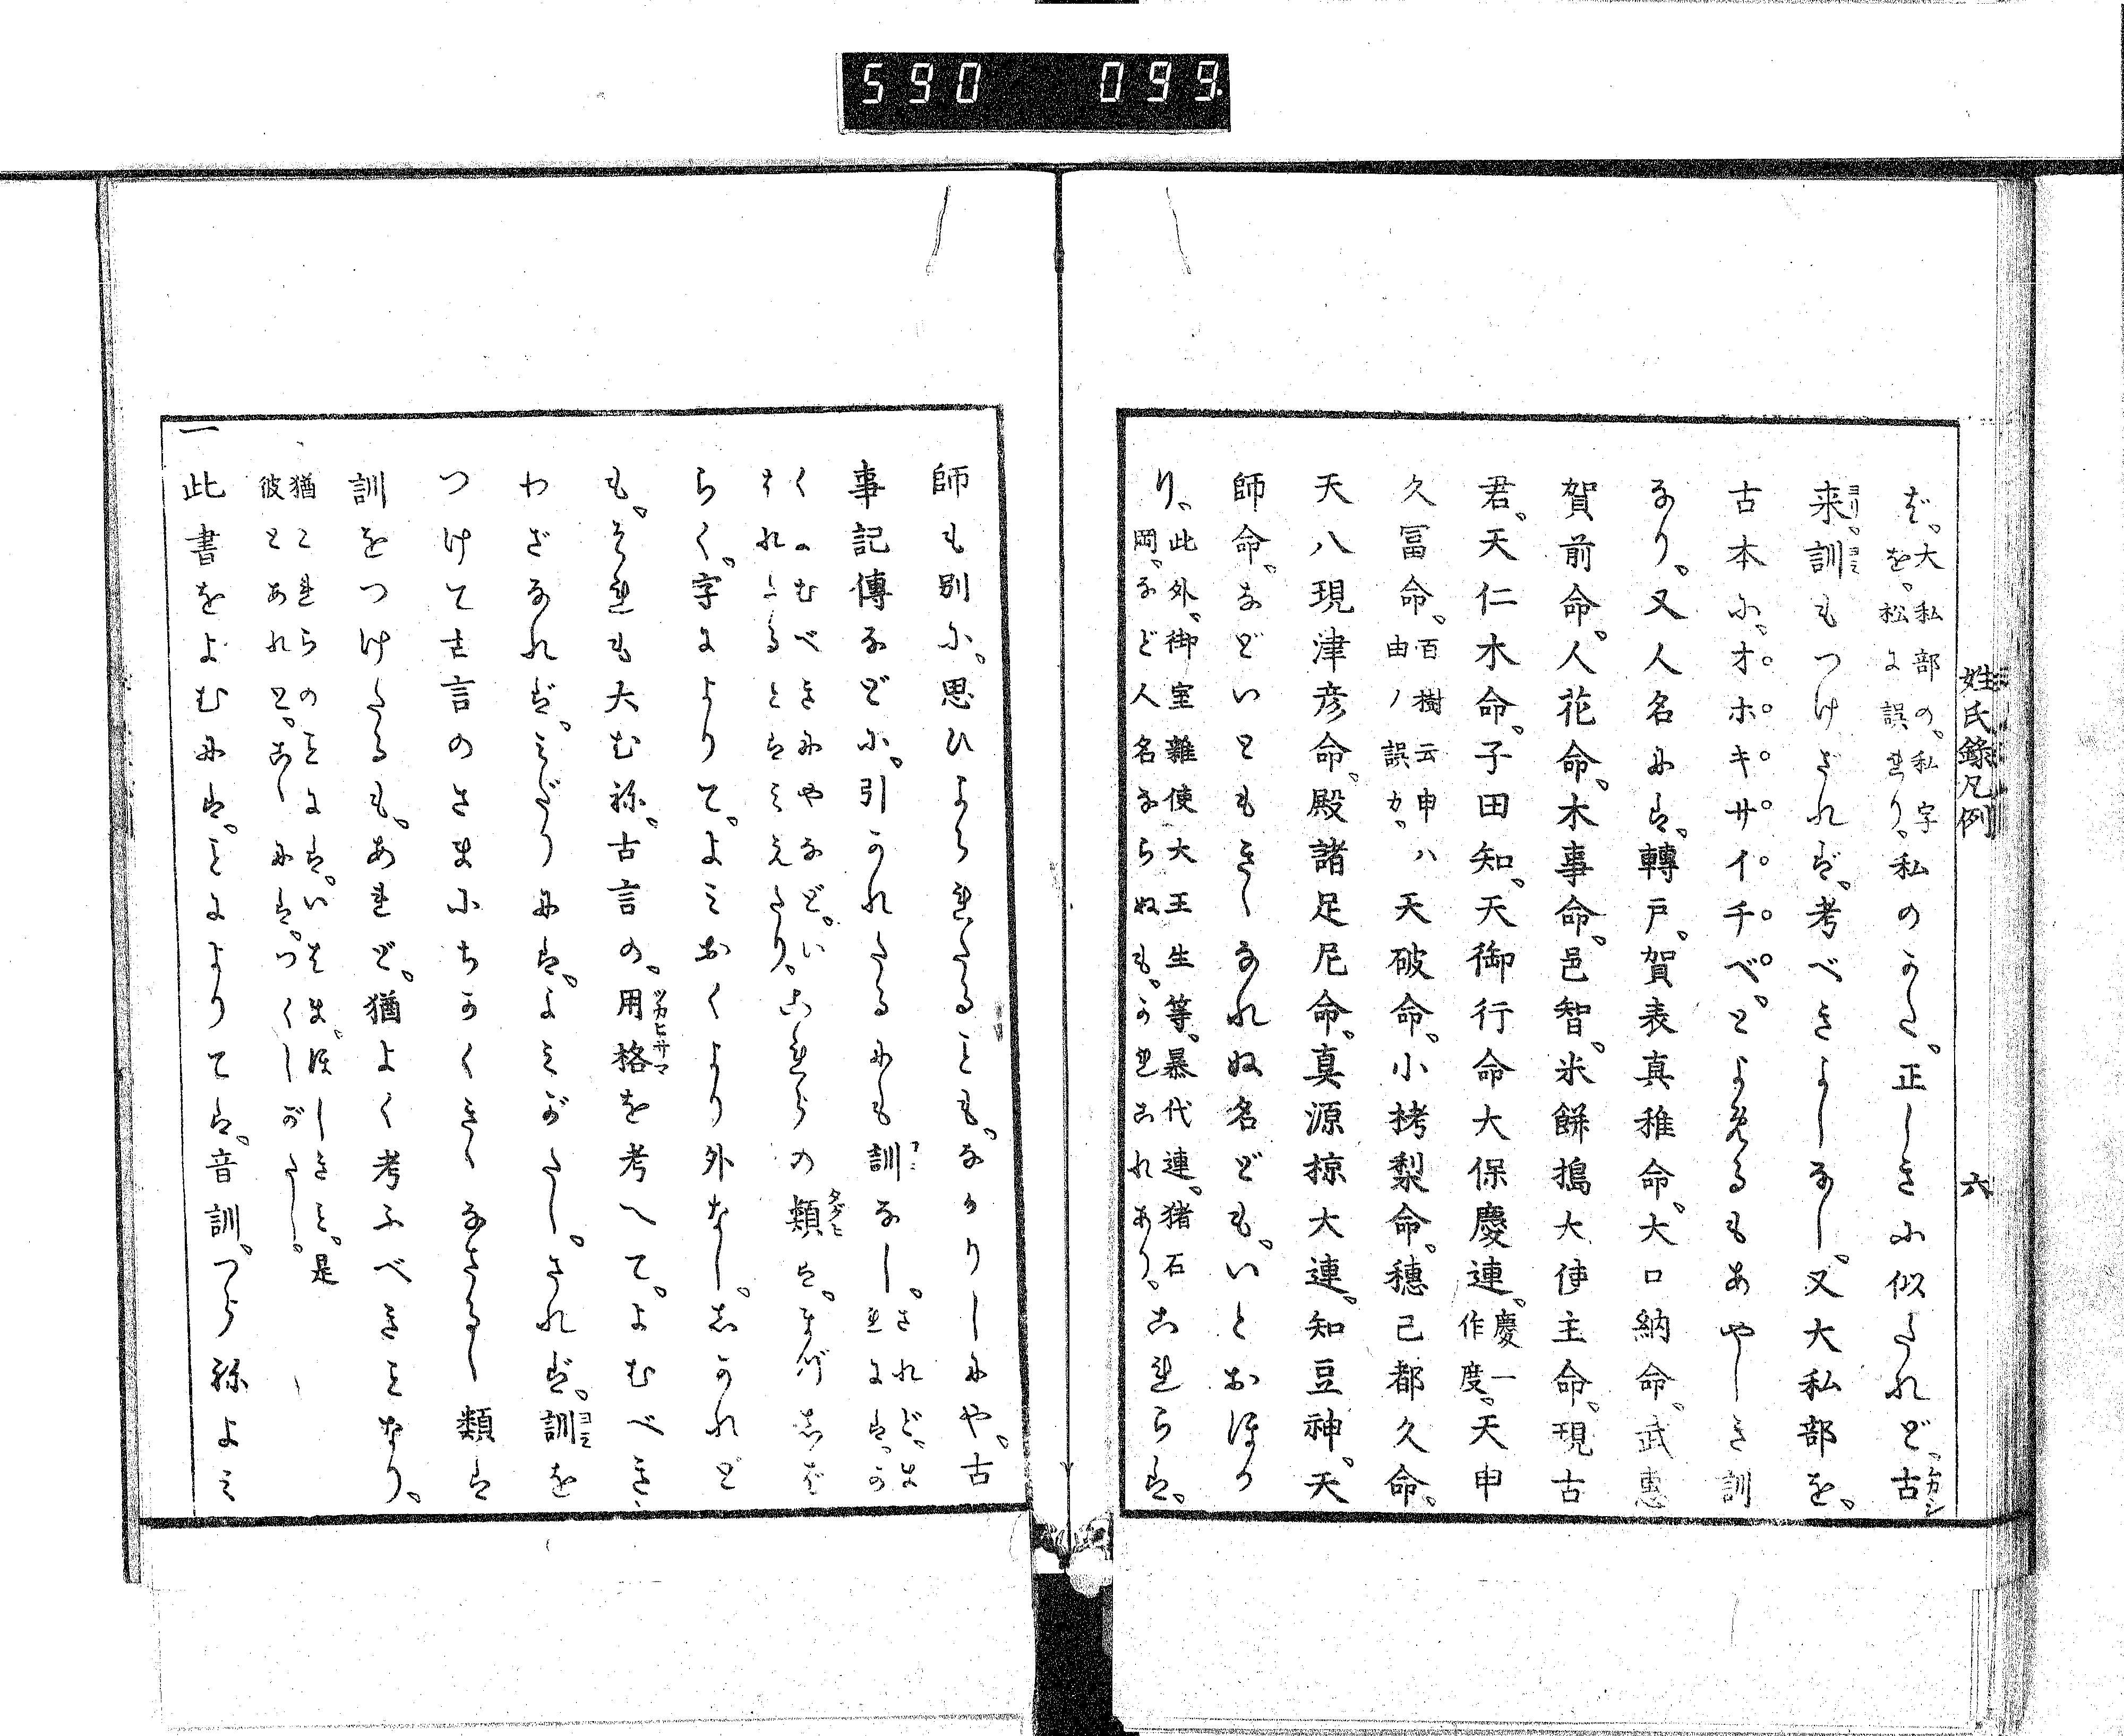 590 099.
姓氏録凡例
六
ば。大私部の。私字
を。松に誤れり。私のかた。正しきに似たれど。古
来訓もつけざれば。考べきよしなし。又大私部を。
古本に。オホキサイチベ。とよめるもあやしき訓
なり。又人名には。轉戸。賀表真稚命。大口納命。武恵
賀前命。人花命。木事命。邑智。米餅搗大使主命。現古
君。天仁木命。子田知。天御行命大保慶連。慶一
作度。天申
久冨命。百樹云申ハ
由ノ誤カ。天破命。小拷梨命。穂己都久命。
天八現津彦命。殿諸足尼命。真源掠大連。知豆神。天
師命。などいともきゝなれぬ名ども。いとおほか
り。此外。御室雜使大王生等。暴代連。猪石
岡。など人名ならぬも。かれこれあり。これらは。
師も別に。思ひよられたることも。なかりしにや。古
事記傳などに。引かれたるにも訓なし。されど。ま
れには。か
くよむべきにやなど。い
はれたるとはみえたり。これらの類は。まづしば
らく。字によりて。よみおくより外なし。しかれど
も。それも大むね。古言の。用格を考へて。よむべき
わざなれば。みだりには。よみがたし。されば。訓を
つけて古言のさまにちかくきゝなさるゝ類は
訓をつけたるも。あれど。猶よく考ふべきことなり。
猶これらのことは。いはま。ほしきこと。是
彼とあれど。こゝには。つくしがたし。
一
此書をよむには。ことによりては。音訓。つらねよみ